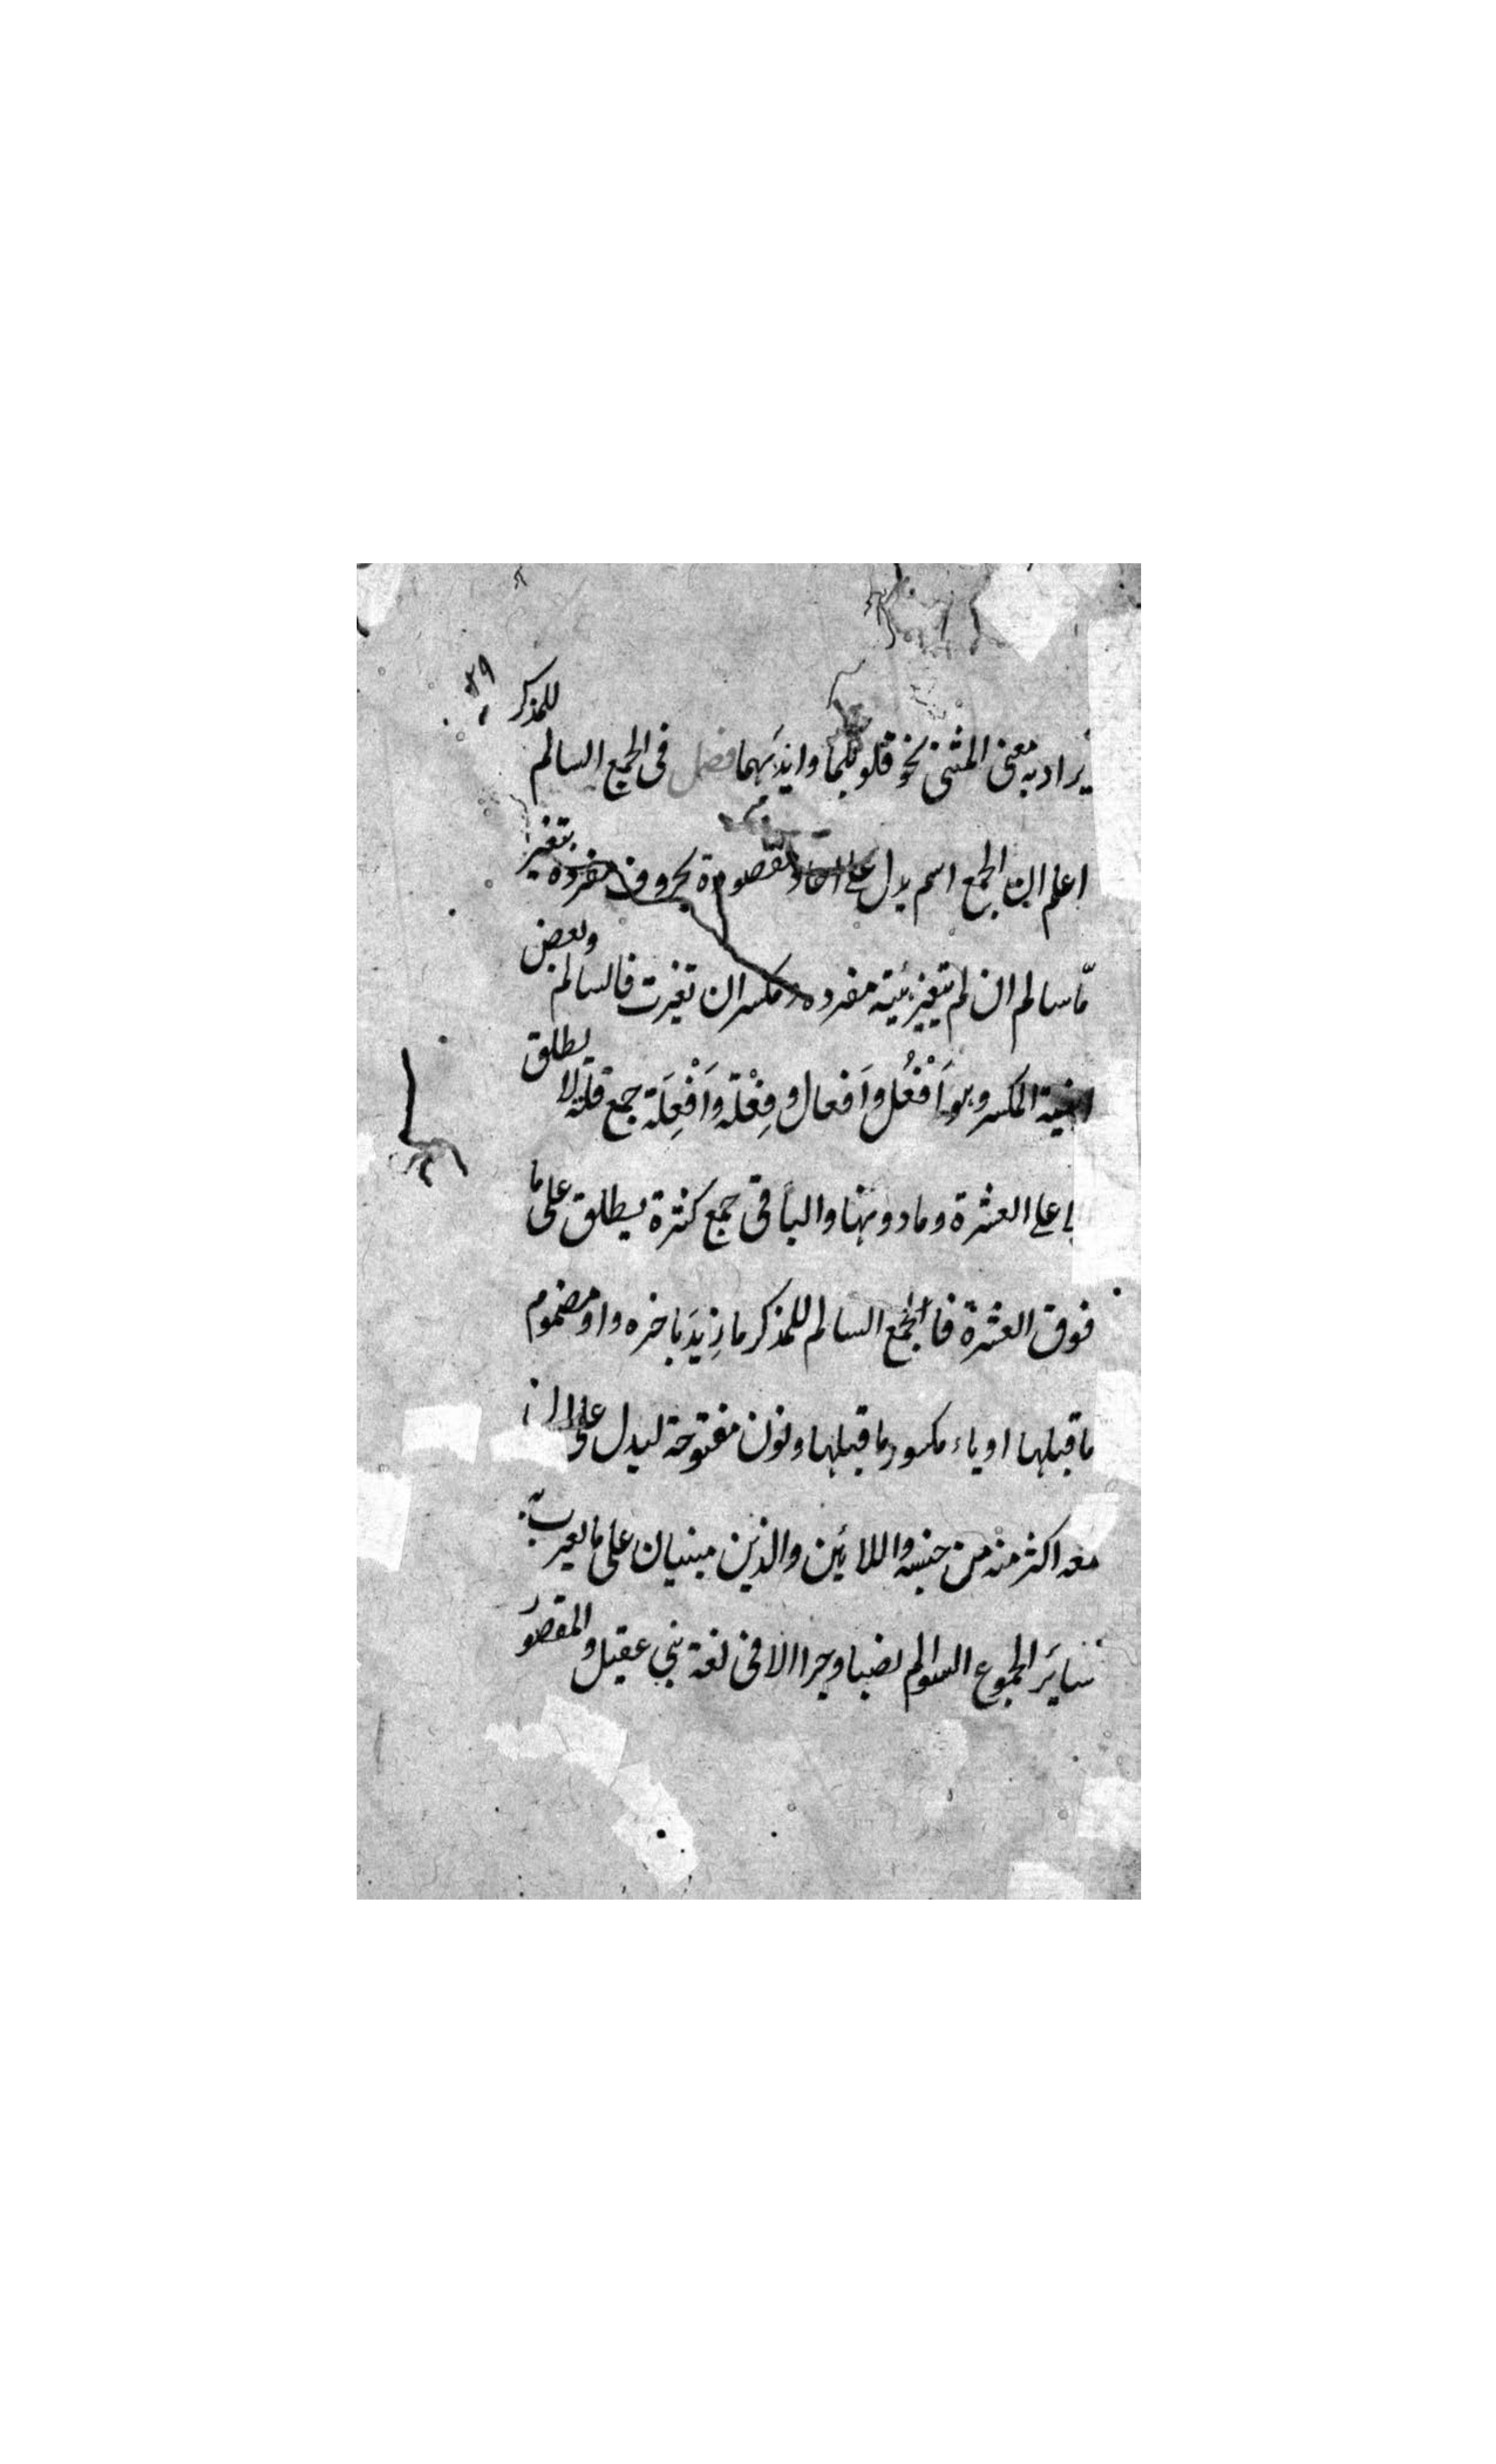 ٣٩
يراد به معنى المثنى نحو قلوبكما وايديهما فصل فى الجمع السالم للمذكر
اعلم ان الجمع اسم يدل على احاد مقصودة بحروف مفرده بتغير
مّا سالم ان لم يتغير بنيته مفرده ومكسر ان تغيرت فالسالم وبعض
ابنية المكسر وهو اَفْعُل واَفعال وفِعْلة واَفْعِلَة جمع قلة لا يطلق
على العشرة وما دونها والباقى جمع كثرة يطلق على ما
فوق العشرة فالجمع السالم للمذكر ما زِيدَ باخره واو مضموم
ما قبلها او ياء مكسور ما قبلها ونون مفتوحة ليدل على ان
معه اكثر منه من جنسه واللائين والذين مبنيان على ما يعرب به
سائر الجموع السوالم نصبا وجرا الا فى لغة بنى عقيل والمقصور